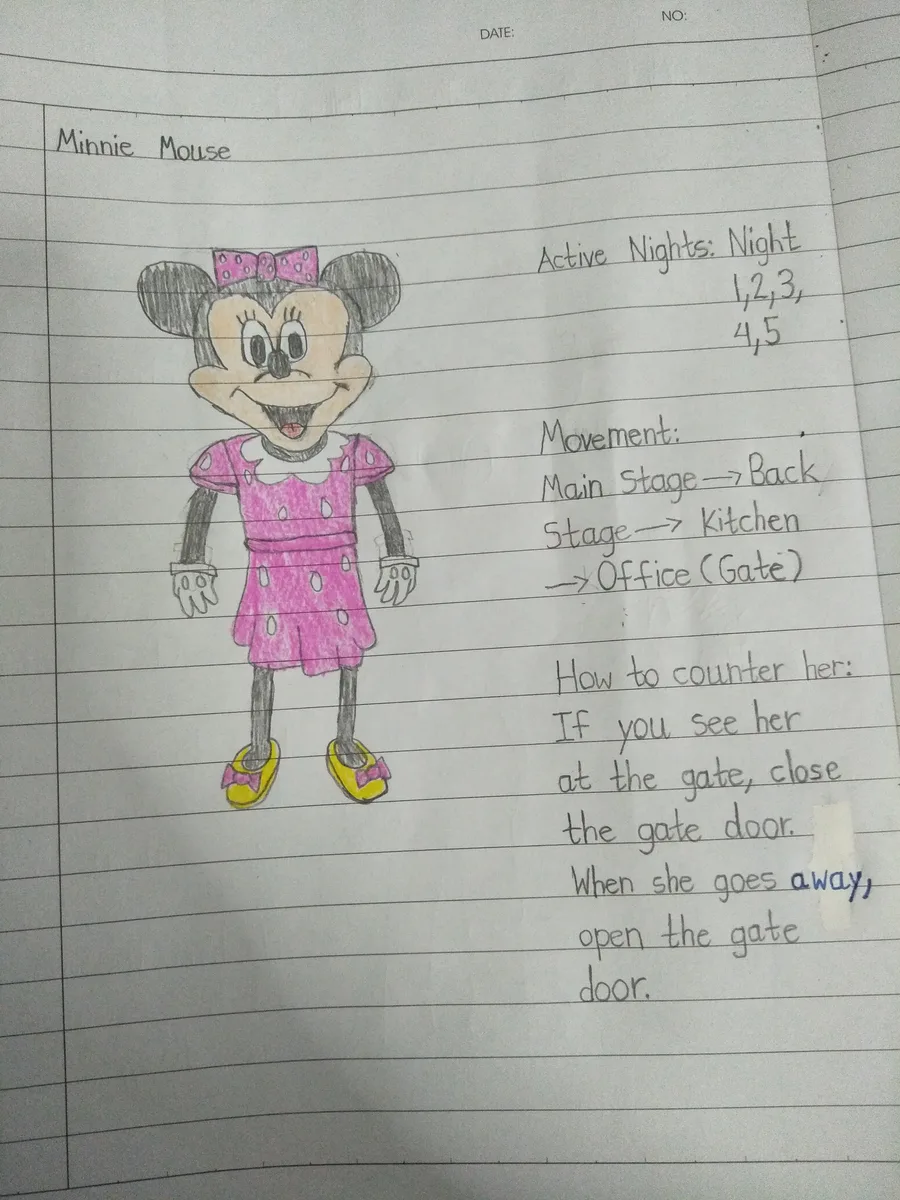 DATE:
NO:
Minnie Mouse
Active Nights: Night
1,2,3,
4,5
Movement:
Main Stage → Back
Stage → Kitchen
→ Office (Gate)
How to counter her:
If you see her
at the gate, close
the gate door.
When she goes away,
open the gate
door.